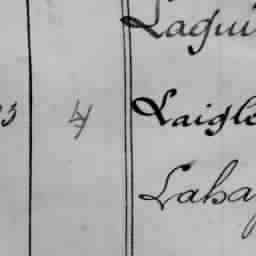 Lagui
3 4 Laigle
Laha